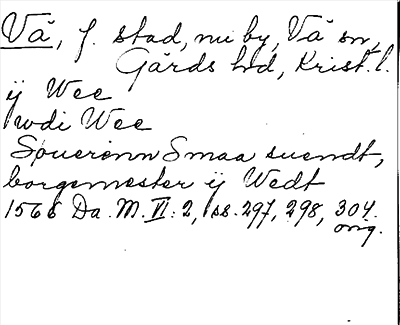 Vä, f. stad, nu by, Vä sn,
Gärds hd, Krist. l.
ij Wee
wdi Wee
Søuerenn Smaa suendt,
borgemester ij Wedt
1565 Da. M. VI: 2, ss. 297, 298, 304.
orig.